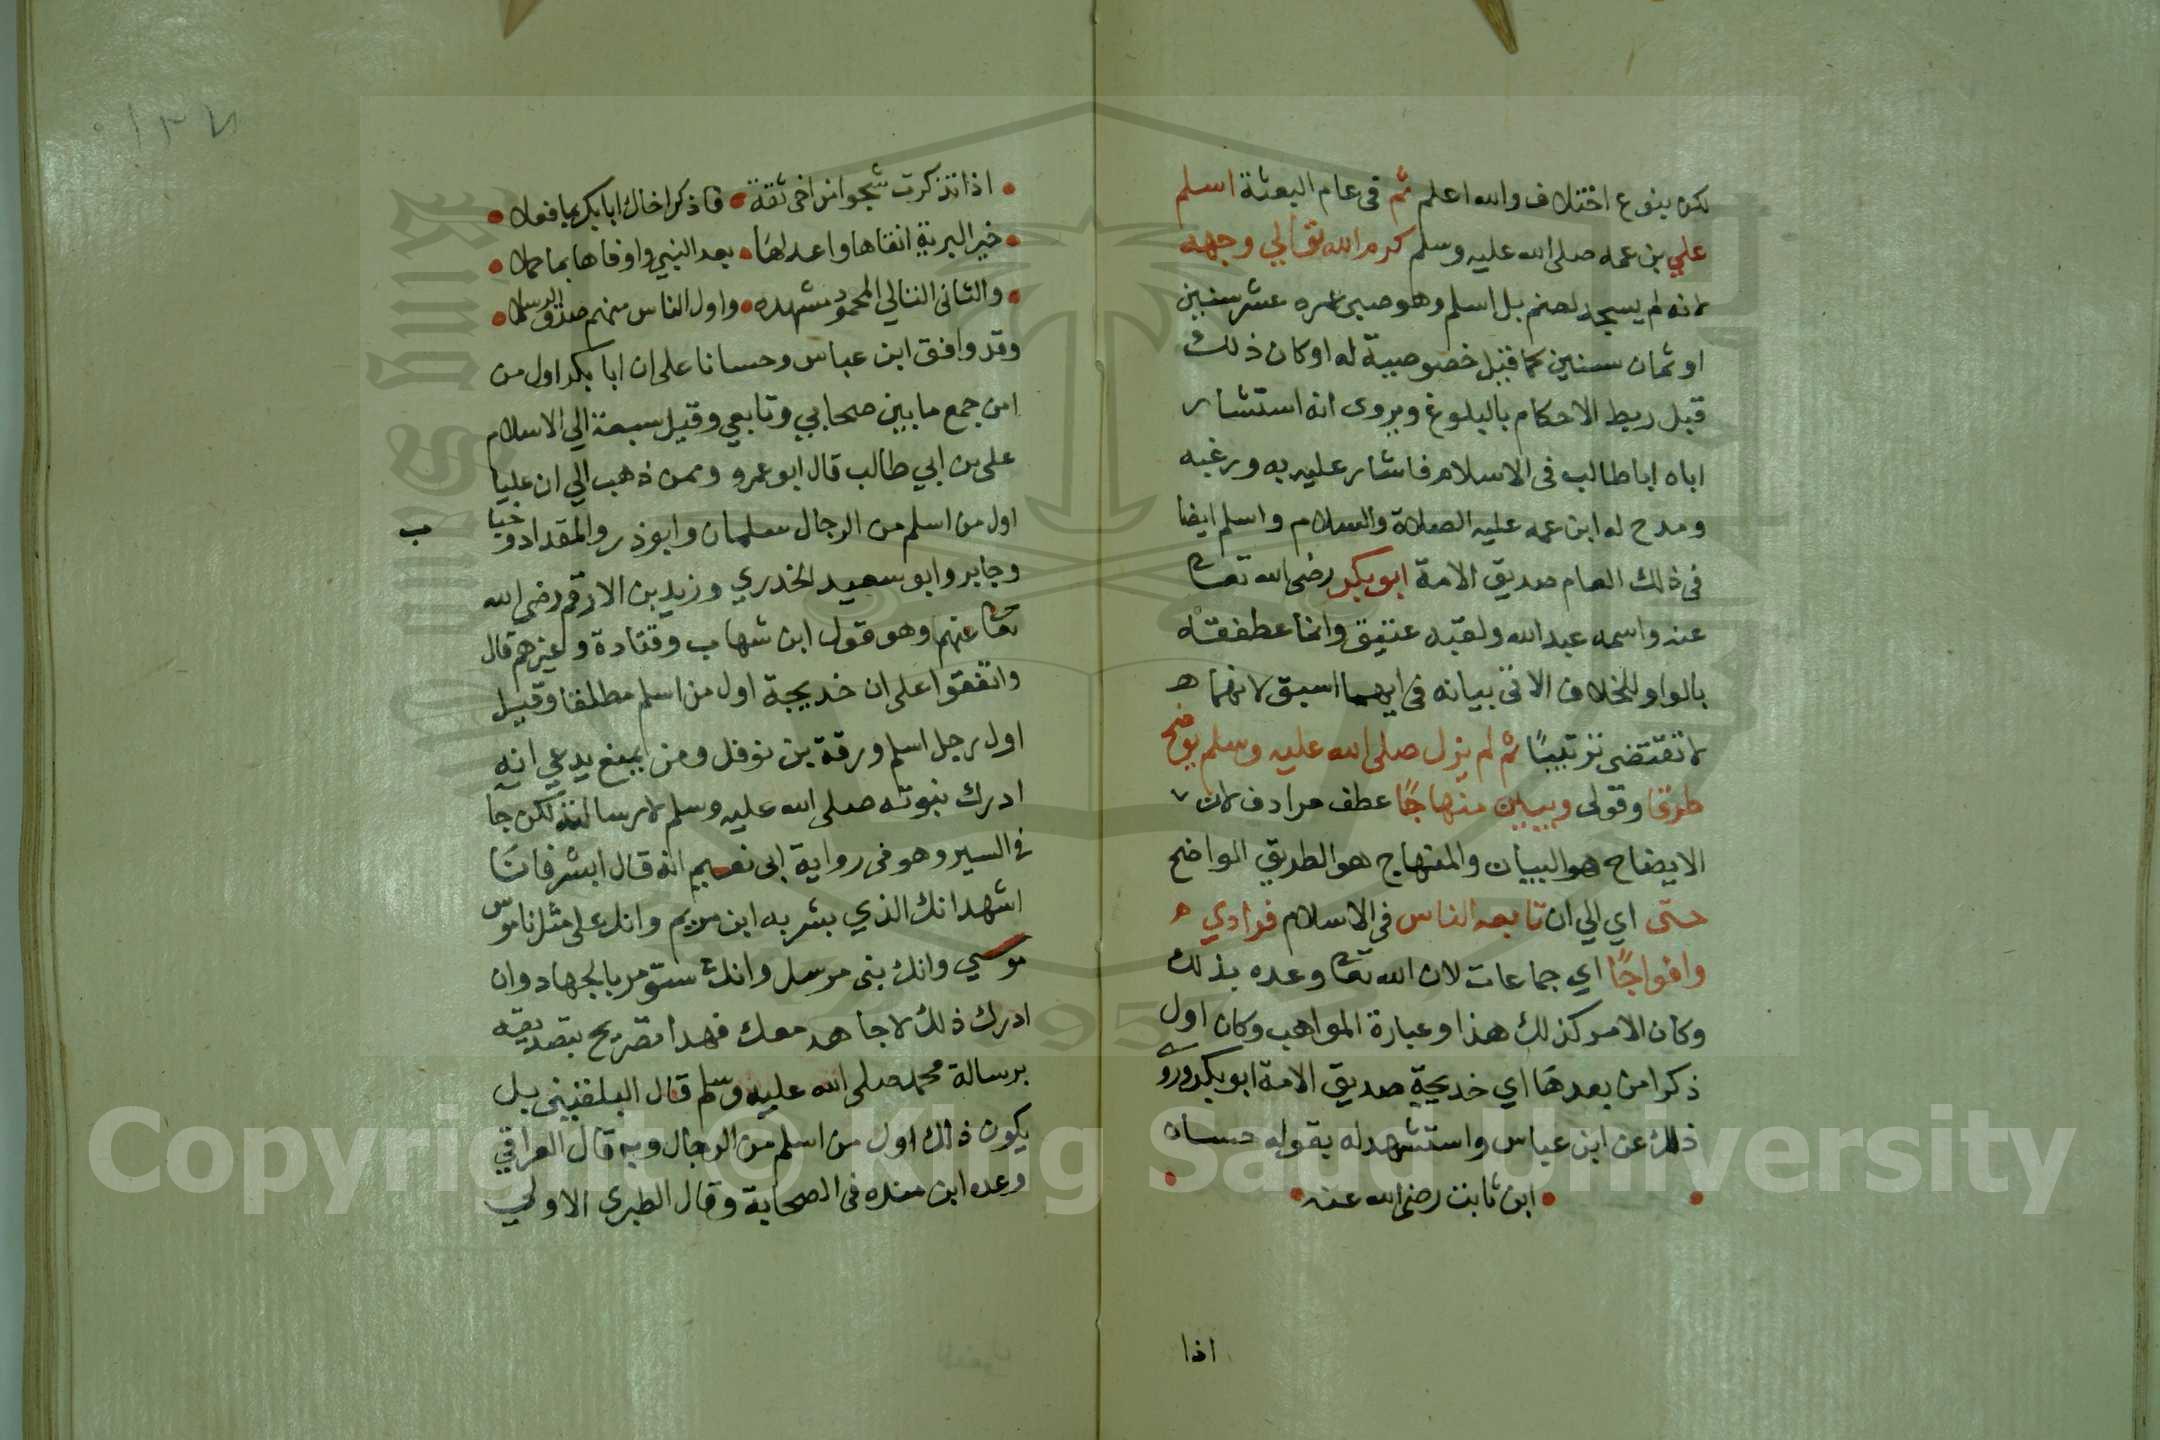 لكن بنوع اختلاف والله اعلم ثم فى عام البعثة اسلم
علي بن عمه صلى الله عليه وسلم كرم الله تعالي وجهه
لانه لم يسجد لصنم بل اسلم وهو صبى عمره عشر سنين
او ثمان سنين كما قيل خصوصية له او كان ذلك
قبل ربط الاحكام بالبلوغ ويروى انه استشار
اباه ابا طالب فى الاسلام فاشار عليه به ورغبه
ومدح له ابن عمه عليه الصلاة والسلام واسلم ايضا
فى ذلك العام صديق الامة ابو بكر رضى الله تعا
عنه واسمه عبد الله ولقبه عتيق وانما عطفته
بالواو للخلاف الاتى بيانه فى ايهما اسبق لانهما
لا تقتضى ترتيبًا ثم لم يزل صلى الله عليه وسلم يوضح
طرقا وقولى ويبين منهاجًا عطف مرادف لان
الايضاح هو البيان والمنهاج هو الطريق الواضح
حتى اي الي ان تابعه الناس فى الاسلام فرادي
وافواجًا اي جماعات لان الله تعا وعده بذلك
وكان الامر كذلك هذا وعبارة المواهب وكان اول
ذكر امن بعدها اي خديجة صديق الامة ابو بكر وروي
ذلك عن ابن عباس واستشهد له بقوله حسان
ابن ثابت رضى الله عنه
اذا
اذا تذكرت شجوا من اخى ثقة فاذكر اخاك ابا بكر بما فعلا
خير البرية اتقاها واعدلها بعد النبي واوفاها بما حملا
والثانى التالي المحمود مشهده واول الناس منهم صدق الرسلا
وقد وافق ابن عباس وحسانا على ان ابا بكر اول من
امن جمع ما بين صحابي وتابعي وقيل سبعة الي الاسلام
على بن ابي طالب قال ابو عمرو وممن ذهب الي ان عليا
اول من اسلم من الرجال سلمان وابو ذر والمقداد وخبا
ب
وجابر وابو سعيد الخدري وزيد بن الارقم رضى الله
تعا عنهم وهو قول ابن شهاب وقتادة وغيرهم قال
واتفقوا على ان خديجة اول من اسلم مطلقا وقيل
اول رجل اسلم ورقة بن نوفل ومن يمنع يدعي انه
ادرك نبوته صلى الله عليه وسلم لا رسالته لكن جا
فى السير وهو فى رواية ابى نعيم انه قال ابشر فانا
اشهد انك الذي بشر به ابن مريم وانك على مثل ناموس
موسي وانك بنى مرسل وانك ستؤمر بالجهاد وان
ادرك ذلك لاجاهد معك فهذا تصريح بتصديقه
برسالة محمد صلى الله عليه وسلم قال البلقينى بل
يكون ذلك اول من اسلم من الرجال وبه قال العراقي
وعده ابن منده فى الصحابة وقال الطبرى الاولي
Copyright © King Saud University